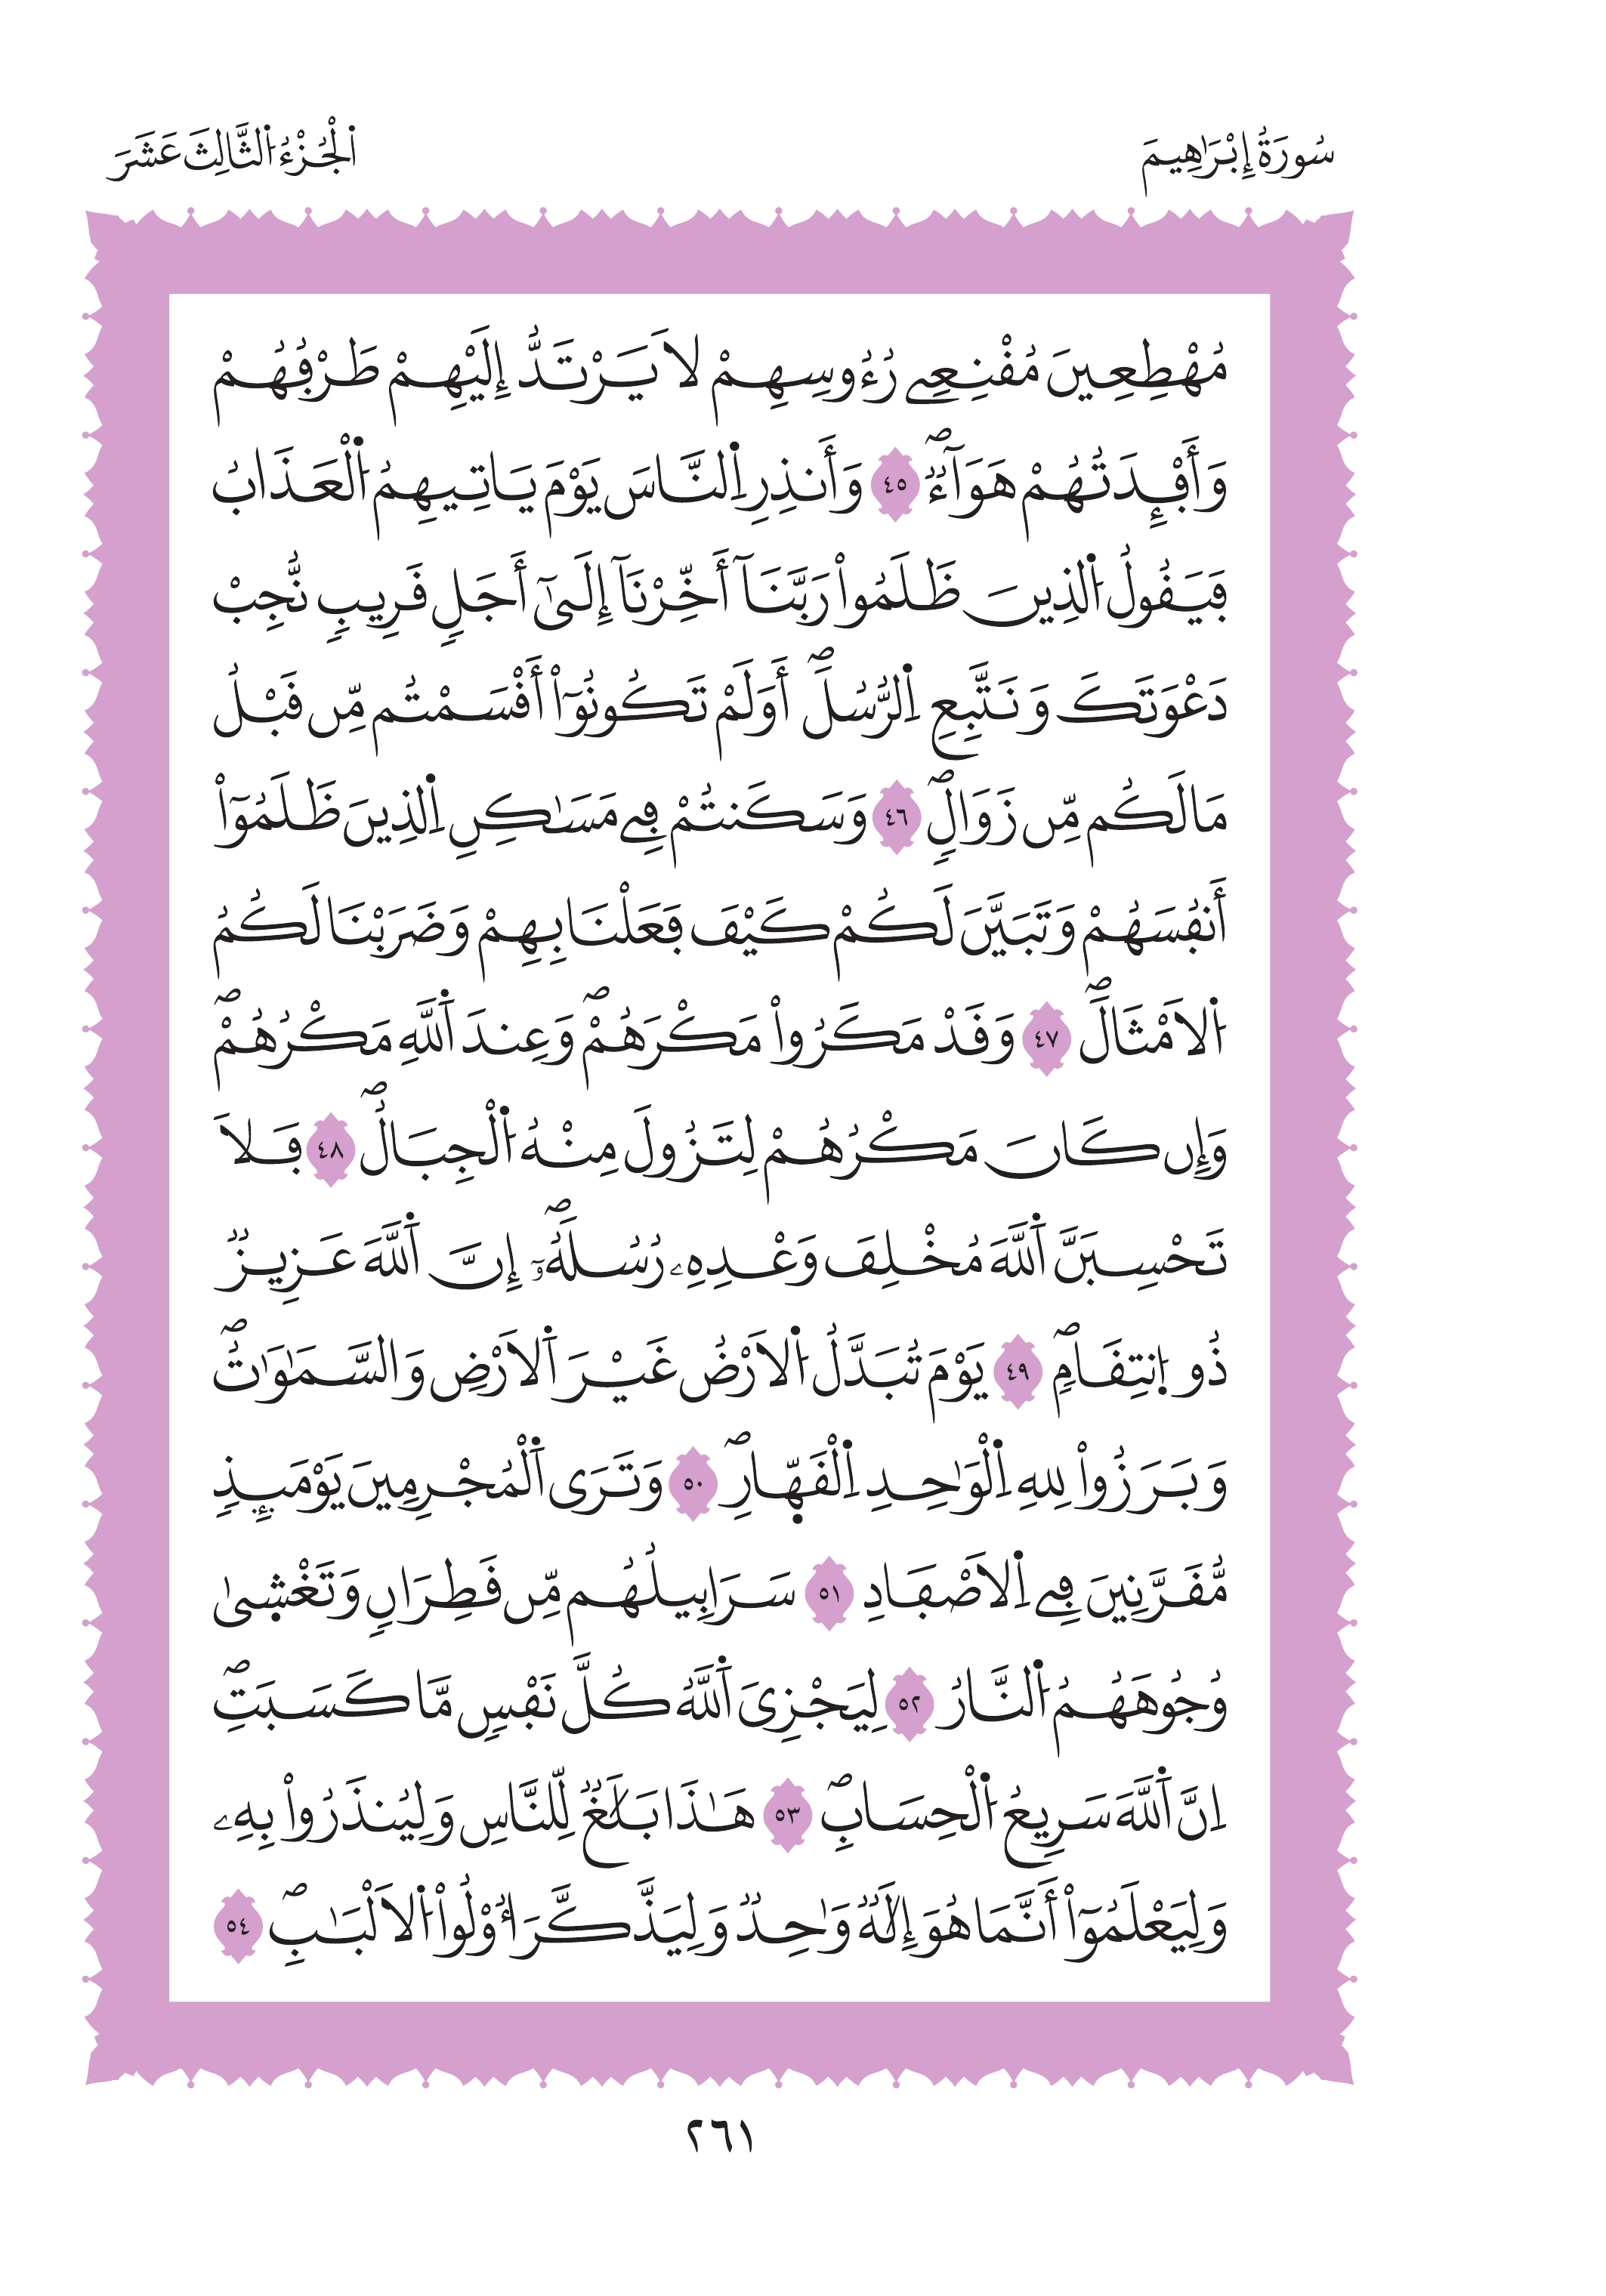 سُورَةُ إِبْرَٰهِيمَ
اَ۬لْجُزْءُ اُ۬لثَّالِثَ عَشَرَ
مُهْطِعِينَ مُقْنِعِے رُءُوسِهِمْ لَا يَرْتَدُّ إِلَيْهِمْ طَرْفُهُمْ
وَأَفْـِٕدَتُهُمْ هَوَآءٞۖ ٤٥ وَأَنذِرِ اِ۬لنَّاسَ يَوْمَ يَاتِيهِمُ اُ۬لْعَذَابُ
فَيَقُولُ اُ۬لذِينَ ظَلَمُواْ رَبَّنَآ أَخِّرْنَآ إِلَيٰٓ أَجَلٖ قَرِيبٖ نُّجِبْ
دَعْوَتَكَ وَنَتَّبِعِ اِ۬لرُّسُلَۖ أَوَلَمْ تَكُونُوٓاْ أَقْسَمْتُم مِّن قَبْلُ
مَا لَكُم مِّن زَوَالٖۖ ٤٦ وَسَكَنتُمْ فِے مَسَٰكِنِ اِ۬لذِينَ ظَلَمُوٓاْ
أَنفُسَهُمْ وَتَبَيَّنَ لَكُمْ كَيْفَ فَعَلْنَا بِهِمْ وَضَرَبْنَا لَكُمُ
اُ۬لَامْثَالَۖ ٤٧ وَقَدْ مَكَرُواْ مَكْرَهُمْۖ وَعِندَ اَ۬للَّهِ مَكْرُهُمْۖ
وَإِن كَانَ مَكْرُهُمْ لِتَزُولَ مِنْهُ اُ۬لْجِبَالُۖ ٤٨ فَلَا
تَحْسِبَنَّ اَ۬للَّهَ مُخْلِفَ وَعْدِهِۦ رُسُلَهُۥٓۖ إِنَّ اَ۬للَّهَ عَزِيزٞ
ذُو اِ۪نتِقَامٖۖ ٤٩ يَوْمَ تُبَدَّلُ اُ۬لَارْضُ غَيْرَ اَ۬لَارْضِ وَالسَّمَٰوَٰتُۖ
وَبَرَزُواْ لِلهِ اِ۬لْوَٰحِدِ اِ۬لْقَهّ۪ارِۖ ٥٠ وَتَرَى اَ۬لْمُجْرِمِينَ يَوْمَئِذٖ
مُّقَرَّنِينَ فِے اِ۬لَاصْفَادِ ٥١ سَرَابِيلُهُم مِّن قَطِرَانٖ وَتَغْش۪يٰ
وُجُوهَهُمُ اُ۬لنَّارُ ٥٢ لِيَجْزِيَ اَ۬للَّهُ كُلَّ نَفْسٖ مَّا كَسَبَتِۖ
اِنَّ اَ۬للَّهَ سَرِيعُ اُ۬لْحِسَابِۖ ٥٣ هَٰذَا بَلَٰغٞ لِّلنَّاسِ وَلِيُنذَرُواْ بِهِۦ
وَلِيَعْلَمُوٓاْ أَنَّمَا هُوَ إِلَٰهٞ وَٰحِدٞ وَلِيَذَّكَّرَ أُوْلُواْ اُ۬لَالْبَٰبِۖ ٥٤
٢٦١